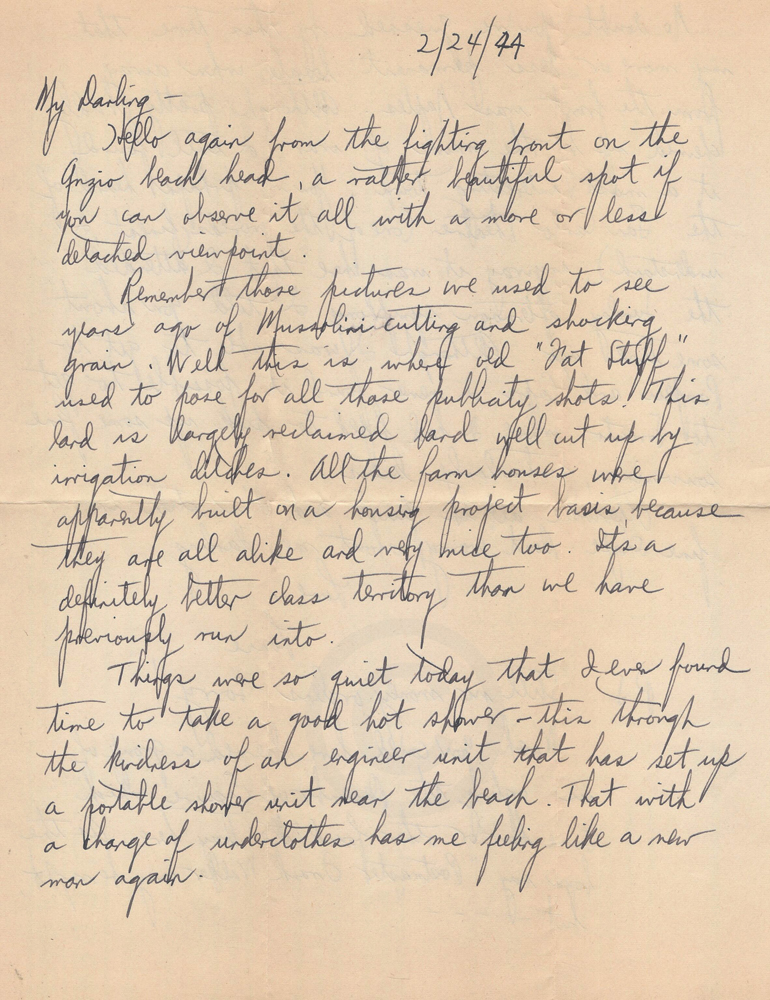 2/24/44
My Darling -
Hello again from the fighting front on the
Anzio beach head, a rather beautiful spot if
you can observe it all with a more or less
detached viewpoint.
Remember those pictures we used to see
years ago of Mussolini cutting and shocking
grain. Well this is where old "Fat Stuff"
used to pose for all those publicity shots! This
land is largely reclaimed land well cut up by
irrigation ditches. All the farm houses were
apparently built on a housing project basis because
they are all alike and very nice too. It's a
definitely better class territory than we have
previously run into.
Things were so quiet today that I even found
time to take a good hot shower - this through
the kindness of an engineer unit that has set up
a portable shower unit near the beach. That with
a change of underclothes has me feeling like a new
man again.